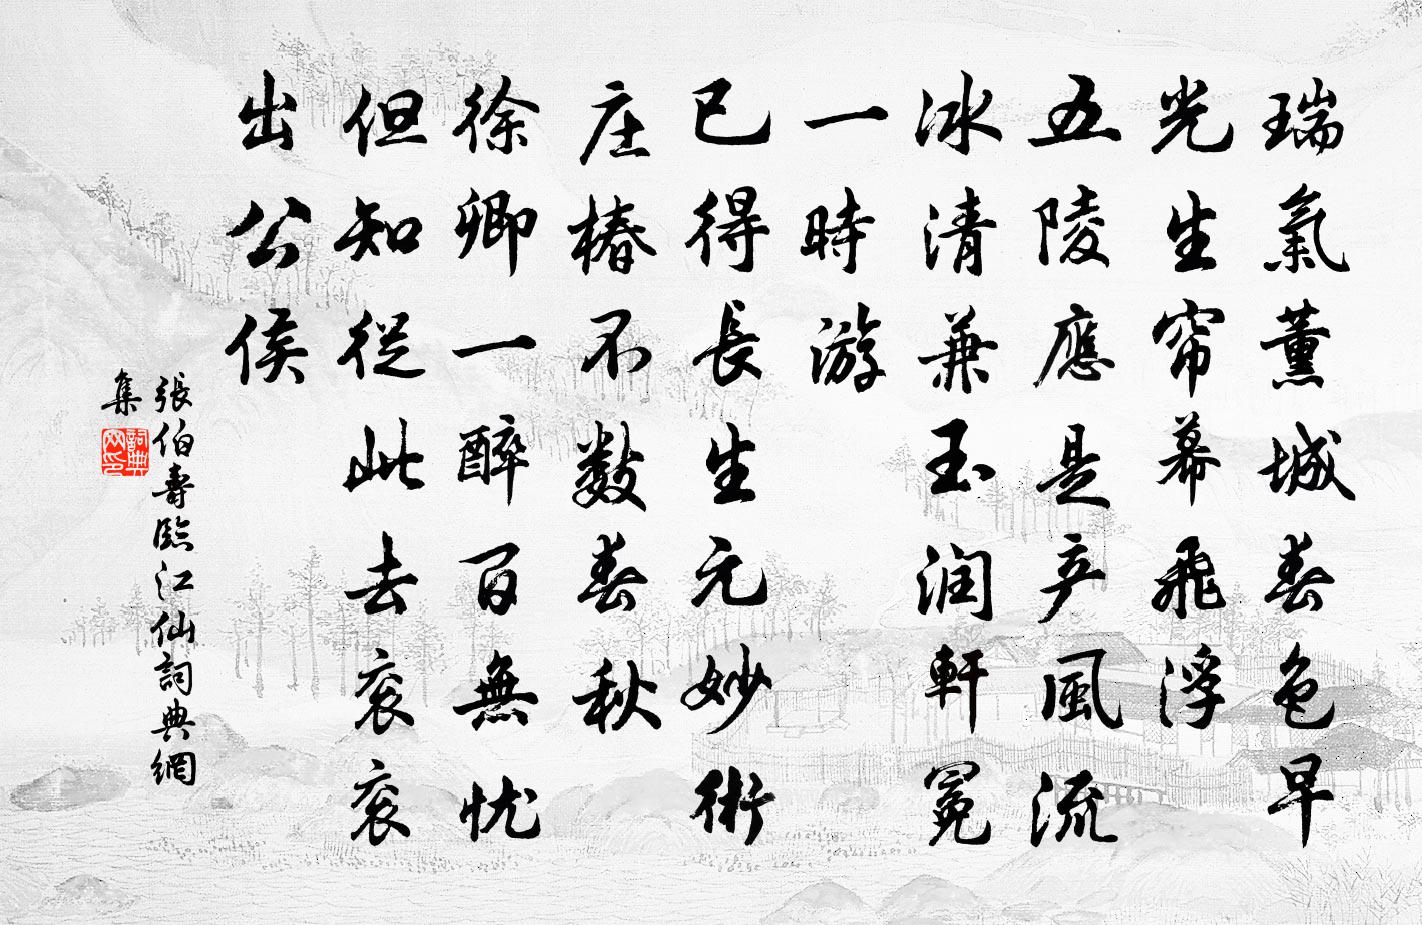 瑞氣薰城春色早
光生帘幕飛浮
五陵應是产風流
冰清兼玉润軒冕
一時游
已得長生元妙術
庄椿不數春秋
徐卿一醉百無忧
但知從此去衮衮
出公侯
張伯壽臨江仙詞典網
集
詞典网印